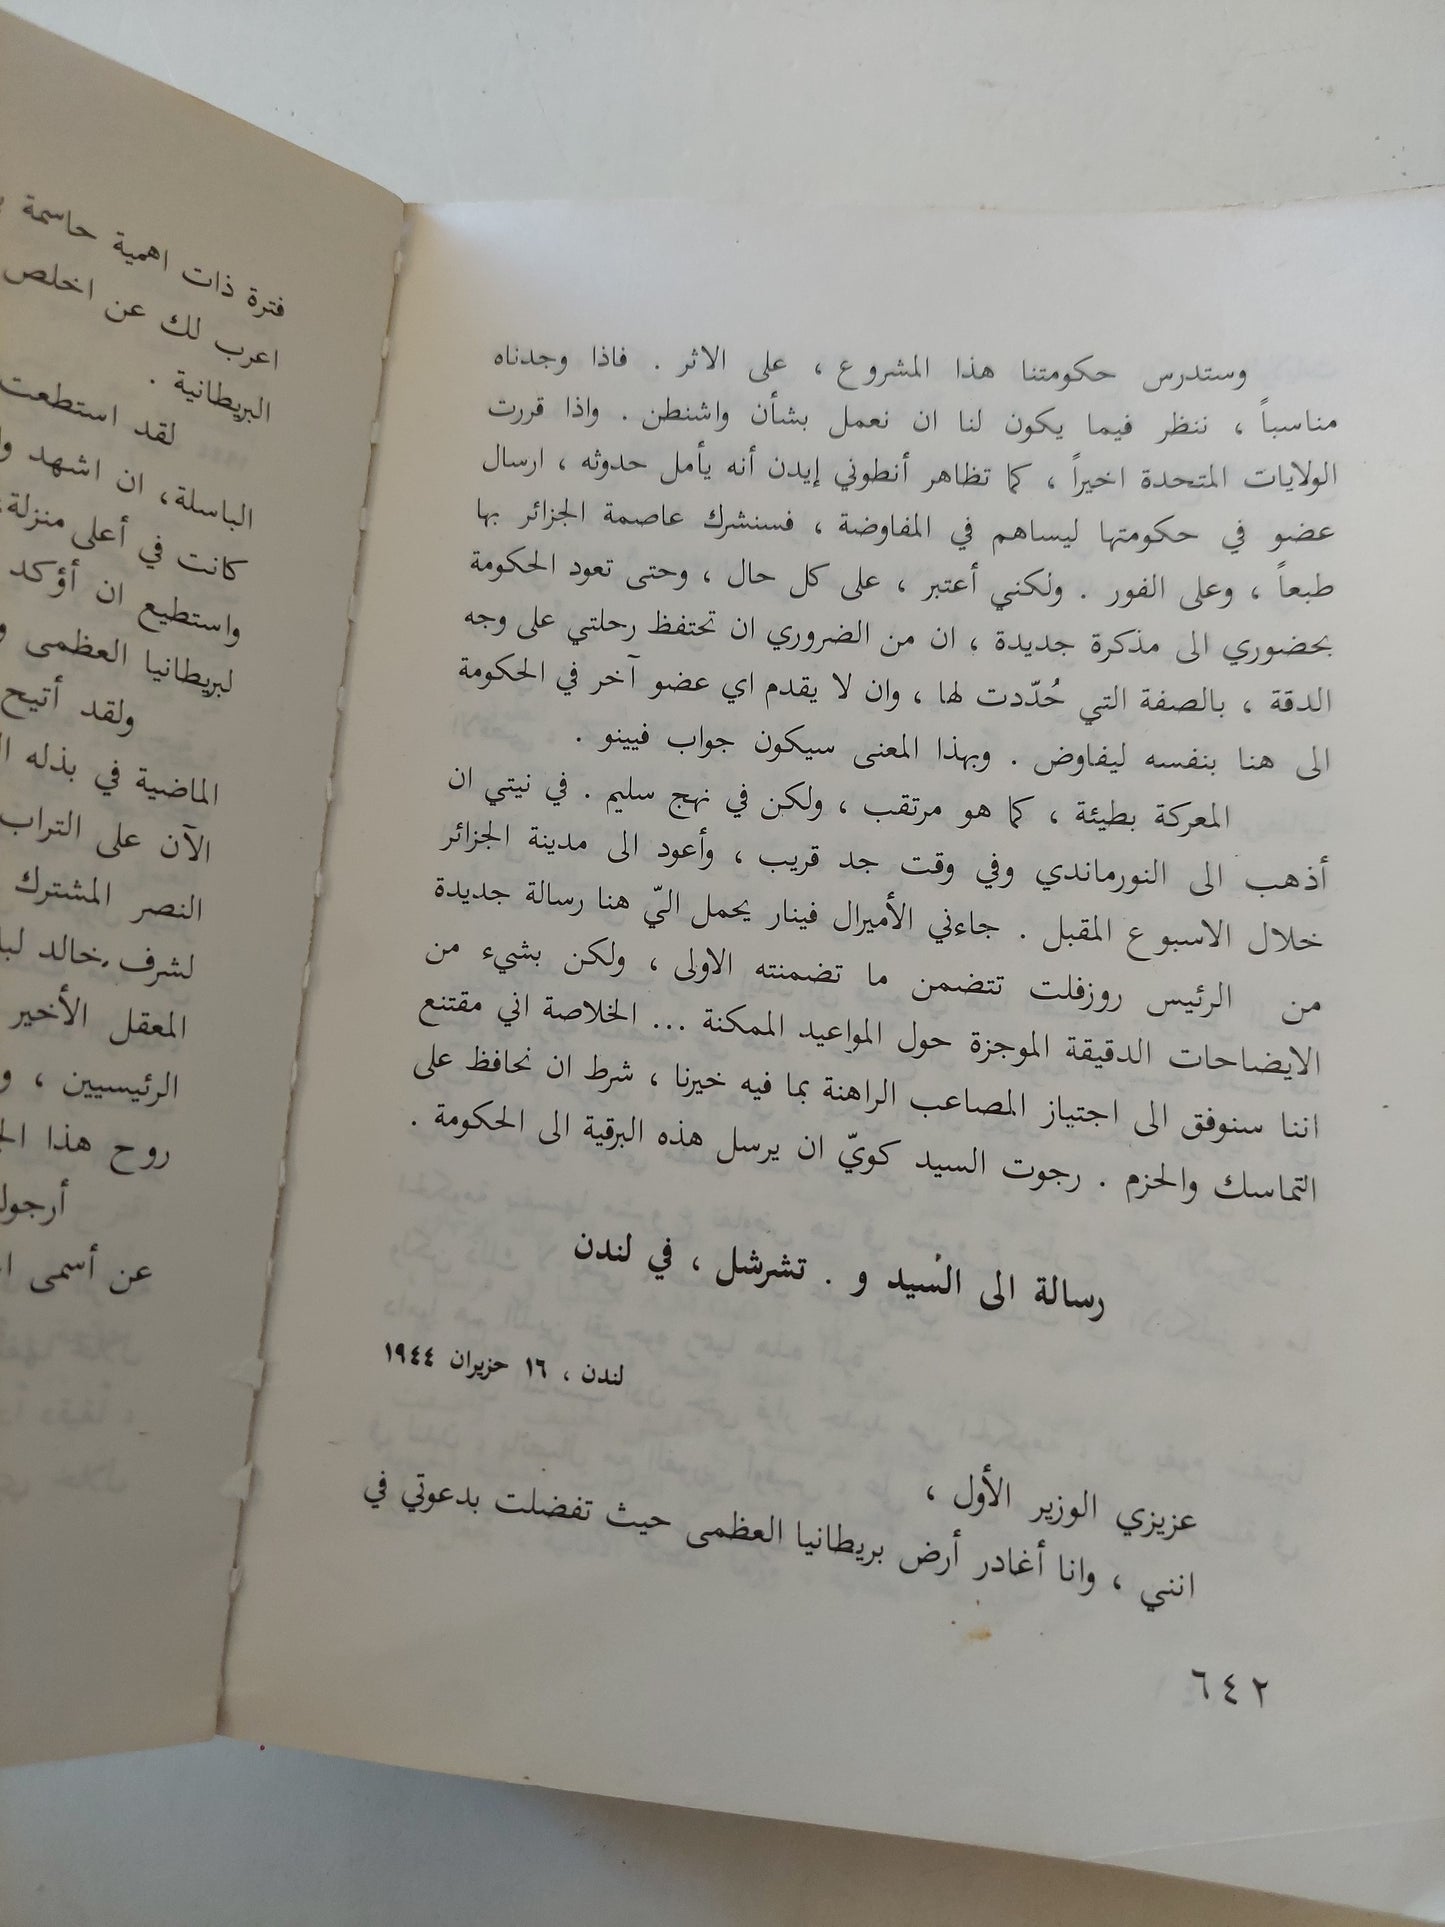 وستدرس حكومتنا هذا المشروع ، على الاثر . فاذا وجدناه
مناسباً ، ننظر فيما يكون لنا ان نعمل بشأن واشنطن . واذا قررت
الولايات المتحدة اخيراً ، كما تظاهر أنطوني إيدن أنه يأمل حدوثه ، ارسال
عضو في حكومتها ليساهم في المفاوضة ، فسنشرك عاصمة الجزائر بها
طبعاً ، وعلى الفور . ولكني أعتبر ، على كل حال ، وحتى تعود الحكومة
بحضوري الى مذكرة جديدة ، ان من الضروري ان تحتفظ رحلتي على وجه
الدقة ، بالصفة التي حُدّدت لها ، وان لا يقدم اي عضو آخر في الحكومة
الى هنا بنفسه ليفاوض . وبهذا المعنى سيكون جواب فيينو .
المعركة بطيئة ، كما هو مرتقب ، ولكن في نهج سليم . في نيتي ان
أذهب الى النورماندي وفي وقت جد قريب ، وأعود الى مدينة الجزائر
خلال الاسبوع المقبل . جاءني الأميرال فينار يحمل اليّ هنا رسالة جديدة
من الرئيس روزفلت تتضمن ما تضمنته الاولى ، ولكن بشيء من
الايضاحات الدقيقة الموجزة حول المواعيد الممكنة ... الخلاصة اني مقتنع
اننا سنوفق الى اجتياز المصاعب الراهنة بما فيه خيرنا ، شرط ان نحافظ على
التماسك والحزم . رجوت السيد كويّ ان يرسل هذه البرقية الى الحكومة .
رسالة الى السيد و . تشرشل ، في لندن
لندن ، ١٦ حزيران ١٩٤٤
عزيزي الوزير الأول ،
انني ، وانا أغادر أرض بريطانيا العظمى حيث تفضلت بدعوتي في
٦٤٢
فترة ذات اهمية حاسمة
اعرب لك عن اخلص
البريطانية .
لقد استطعت
الباسلة، ان اشهد
كانت في أعلى منزلة
واستطيع ان أؤكد
لبريطانيا العظمى
ولقد أتيح
الماضية في بذله
الآن على التراب
النصر المشترك
لشرف خالد
المعقل الأخير
الرئيسيين ، و
روح هذا
أرجو
عن أسمى